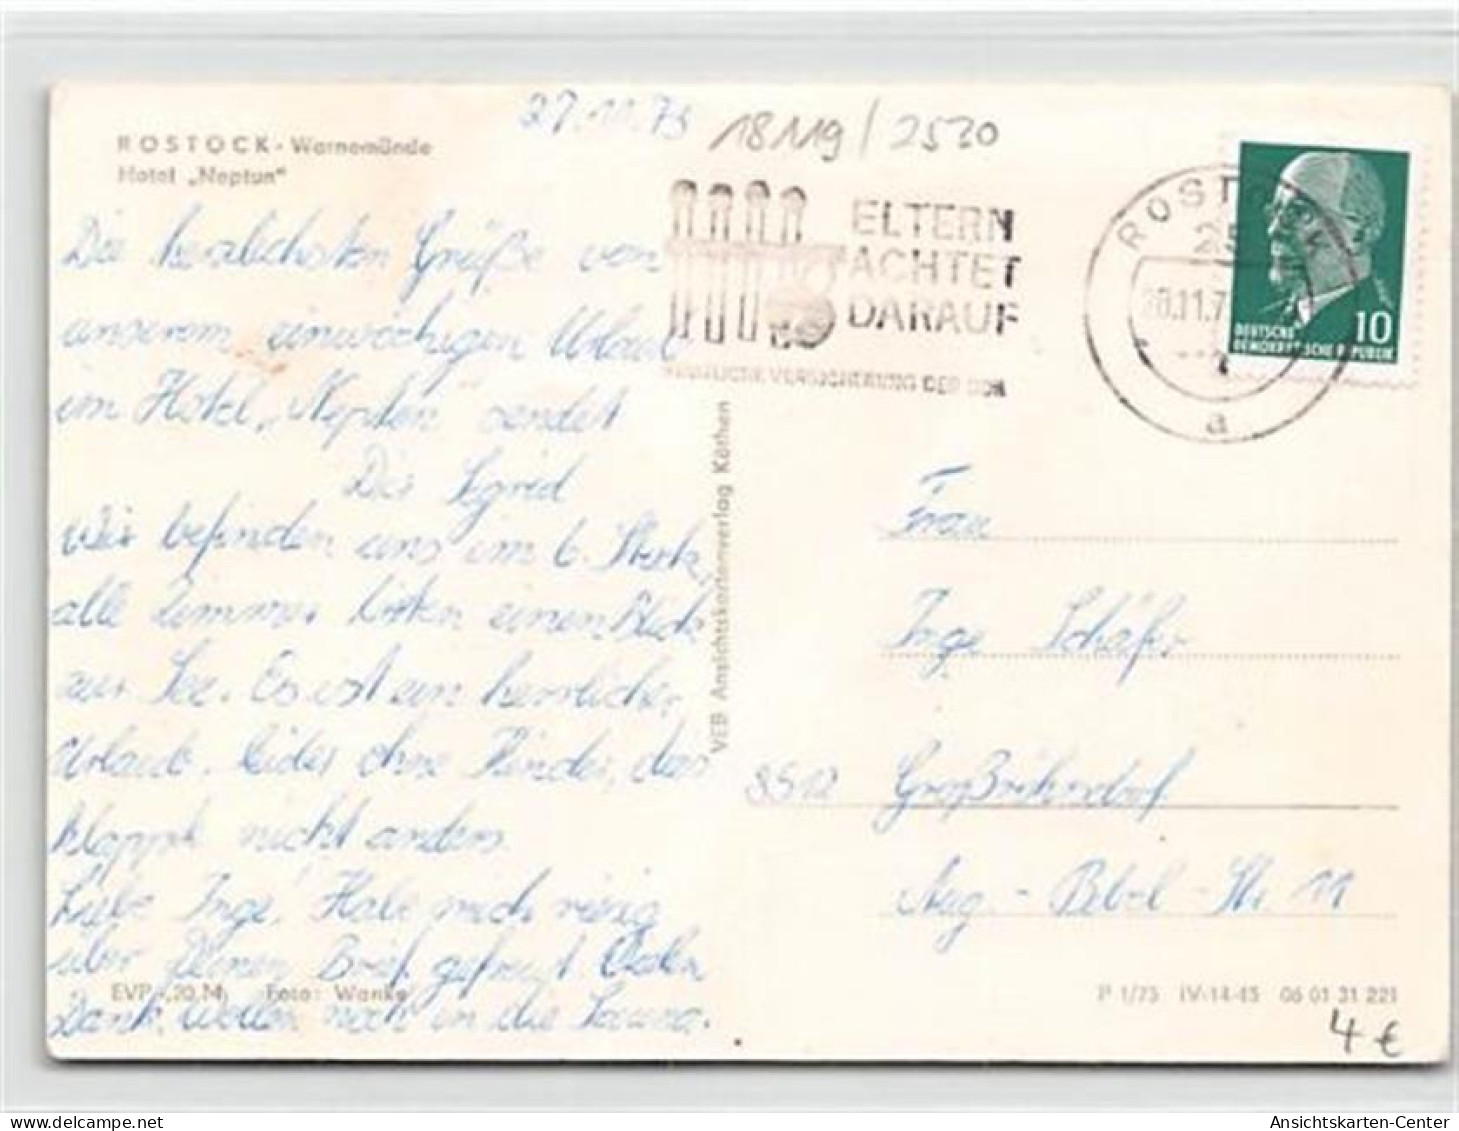 27.11.75
18119/2530
ROSTOCK-Warnemünde
Hotel „Neptun"
ELTERN
ACHTET
DARAUF
STAATLICHE VERSICHERUNG DER DDR
ROSTOCK
25
a
DEUTSCHE
DEMOKRATISCHE REPUBLIK
10
Die herzlichsten Grüße von
unserem einwöchigen Urlaub
im Hotel „Neptun" sendet
Dir Sigrid
Wir befinden uns im 6. Stock,
alle Zimmer bieten einen Blick
zur See. Es ist ein herrlicher
Urlaub, leider ohne Kinder, das
klappte nicht anders.
Liebe Inge! Habe mich riesig
über Deinen Brief gefreut. Vielen
Dank. Wollen noch in die Sauna.
EVP -,20 M Foto: Wanke
VEB Ansichtskartenverlag Köthen
Frau
Inge Schäfer
8512 Großröhrsdorf
Aug.-Bebel-Str. 11
P 1/75 IV-14-45 06 01 31 221
4 €
Ansichtskarten-Center